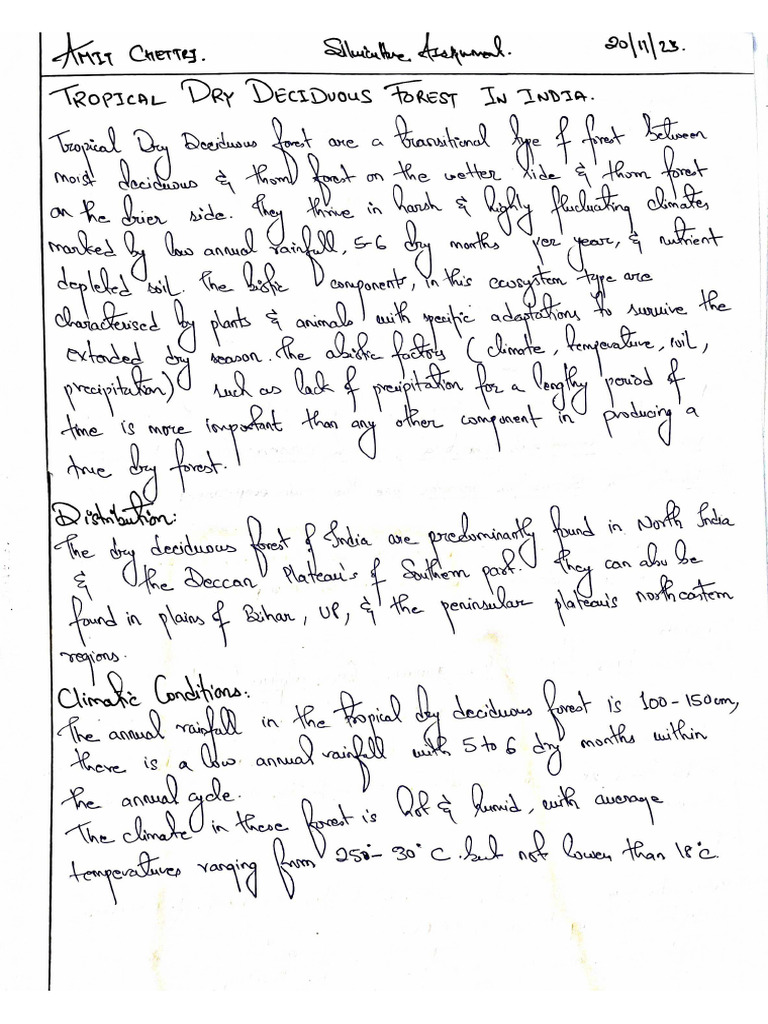 AMIT CHETTRI. Silviculture Assignment. 20/11/23.
TROPICAL DRY DECIDUOUS FOREST IN INDIA.
Tropical Dry Deciduous forest are a transitional type of forest between
moist deciduous & thorn forest on the wetter side & thorn forest
on the drier side. They thrive in harsh & highly fluctuating climates,
marked by low annual rainfall, 5-6 dry months per year, & nutrient
depleted soil. The biotic components, in this ecosystem type are
characterised by plants & animals with specific adaptations to survive the
extended dry season. The abiotic factors (climate, temperature, soil,
precipitation) such as lack of precipitation for a lengthy period of
time is more important than any other component in producing a
true dry forest.
Distribution:
The dry deciduous forest of India are predominantly found in North India
& the Deccan Plateau's of Southern part. They can also be
found in plains of Bihar, UP, & the peninsular plateau's northeastern
regions.
Climatic Conditions:
The annual rainfall in the tropical dry deciduous forest is 100-150cm,
there is a low annual rainfall with 5 to 6 dry months within
the annual cycle.
The climate in these forest is hot & humid, with average
temperatures ranging from 25°-30°C. but not lower than 18°c.